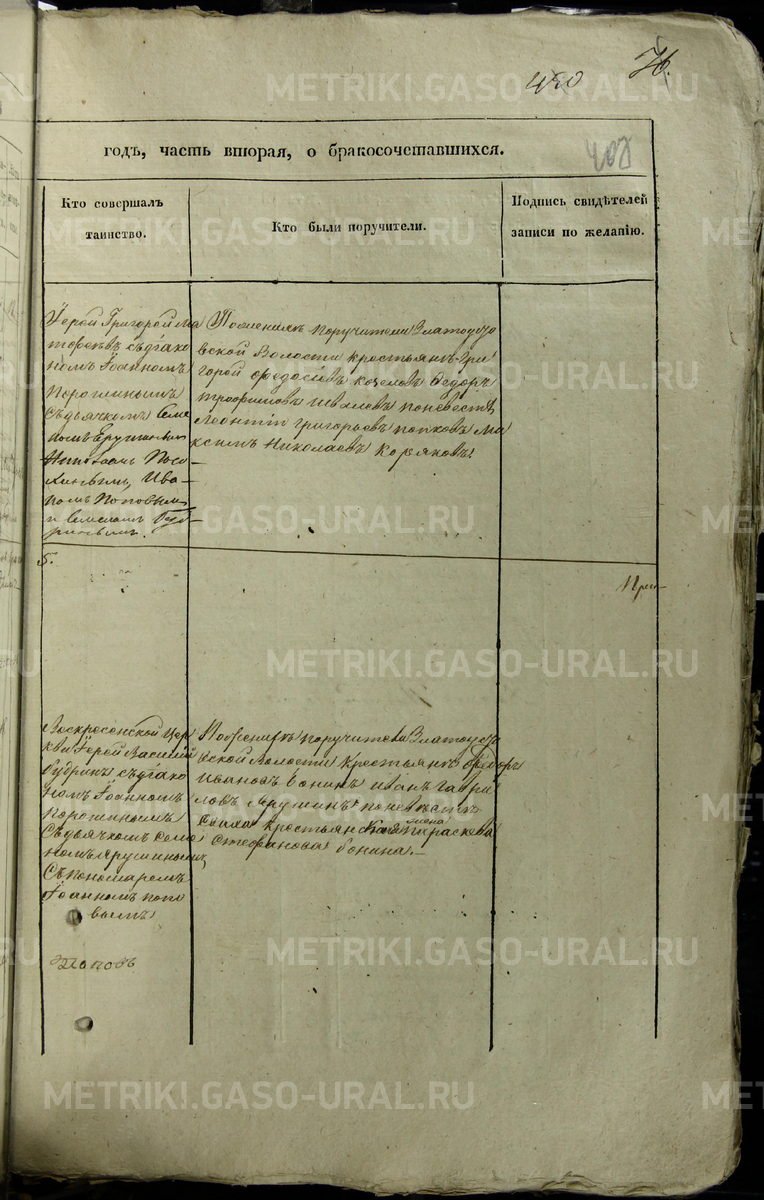 450 76.
408
годъ, часть вторая, о бракосочетавшихся.
Кто совершалъ
таинство.
Кто были поручители.
Подпись свидѣтелей
записи по желанію.
Іерей Григорей Ма
съдіако
номъ Іоанномъ
Порошинымъ
Съдьячкомъ Семе
номъ
Ива
номъ Поповымъ
и
Поженихѣ поручители Златоусто
вской Волости крестьянъ Гри
горей Федосѣевъ козловъ Федоръ
трофимовъ поневестѣ
Леонтій Григорьевъ попковъ Ма
ксимъ Николаевъ Коряковъ.
5.
При
Воскресенской Цер
кви Іерей Василій
Кудринъ съдіако
номъ Іоанномъ
Порошинымъ
Съдьячкомъ Семе
номъ Ярушинымъ
Съпономаремъ
Іоанномъ попо
вымъ
Поженихѣ поручители Златоусто
вской волости крестьянъ Федоръ
Ивановъ Бонинъ иванъ Гаври
ловъ Ярушинъ поневѣстѣ
крестьянская жена параскева
Стефанова бонина.
Поповъ
METRIKI.GASO-URAL.RU